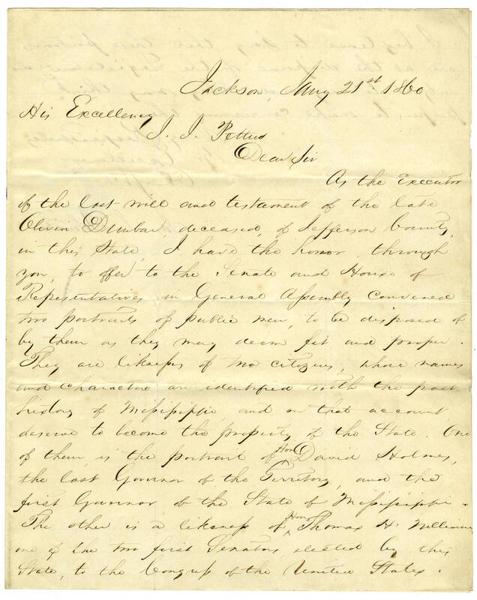 Jackson, Jany 21st 1860
His Excellency
J. J. Pettus
Dear Sir
As the Executor
of the last will and testament of the late
Dunbar, deceased, of Jefferson County,
in this State, I have the honor through
you, to offer to the Senate and House of
Representatives in General Assembly convened
two portraits of public men, to be disposed of
by them as they may deem fit and proper.
They are likeness of two citizens, whose names
and characters are identified with the past
history of Mississippi, and on that account
deserve to become the property of the State. One
of them is the portrait of Hon David Holmes,
the last Govenor of the Territory, and the
first Govenor of the State of Mississippi.
The other is a likeness of Hon Thomas H. Williams
one of the two first Senators elected by this
State, to the Congress of the United States.